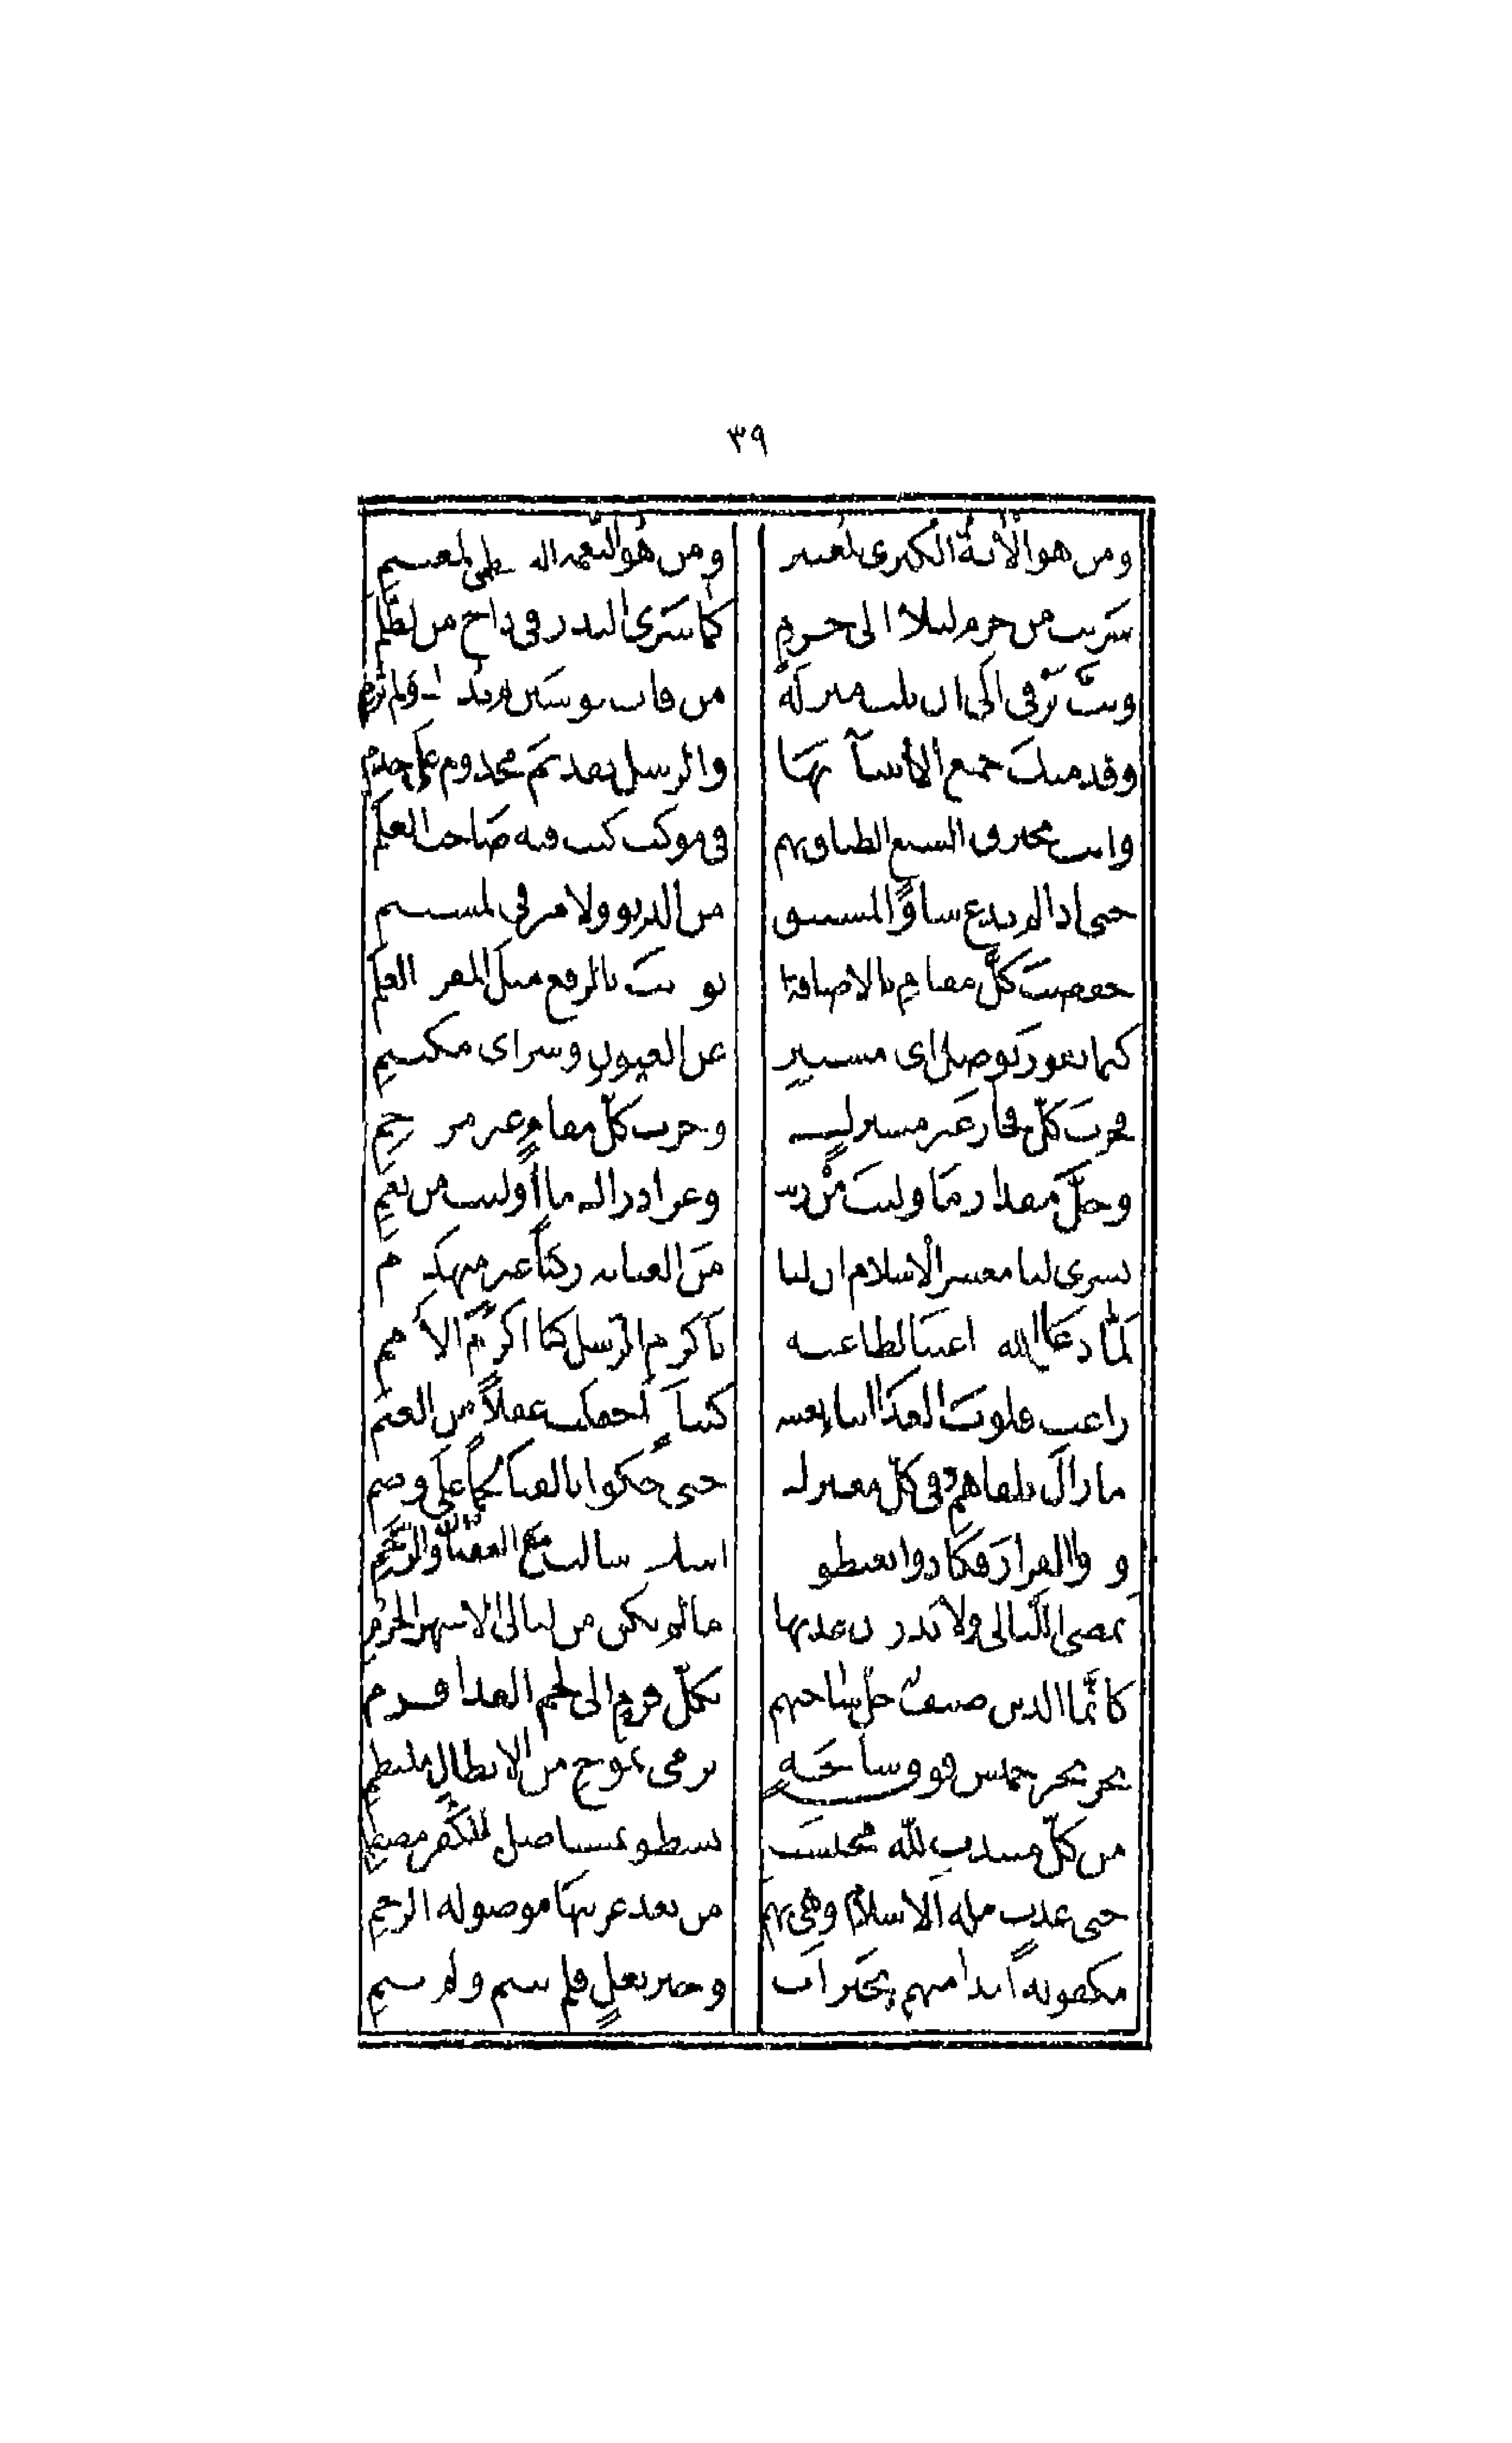 ٣٩
ومن هو الْآيةُ الكُبرى لمُعتبر ومن هُو النّعمة العظمى لمغتنم
سَريت من حَرمٍ ليلًا الى حرمٍ كمَا سَرَى البدر فى داجٍ من الظُّلم
وبتَّ تَرْقى الى ان نلت منزلةً من قاب قوسَين لم تُدرك ولم تُرم
وقدمتكَ جميع الأنبيآ بهَا والرسل تقديمَ مخدوم على خدم
وانت تخترق السبع الطباق بهم فى موكبٍ كنت فيه صَاحب العَلَم
حتى اذا لم تدع شاوًا لمستبق من الدنو ولا مرقى لمستنم
خفضتَ كلَّ مقامٍ بالاضافة اذ نوديتَ بالرفع مثل المفرد العلم
كيما تفوز بوصل اى مستترٍ عن العيون وسر اى مكتتم
فحزتَ كلَّ فخار غَير مشتركٍ وجزت كلّ مقامٍ غير مزدحم
وجلَّ مقدار مَا وليتَ منْ رتب وعز ادراك ما أوليت من نعمِ
بشرى لنا معشر الْاسلام ان لنا منَ العناية ركنًا غير منهدم
لمَّا دعَا الله داعينا لطاعته بأكرم الرّسل كنا اكرمَ الأمم
راعت قلوبَ العدَا انبا بعثته كنبأةٍ اجفلت غفلًا من الغنم
ما زالَ يلقاهمُ فى كلّ معترك حتى حَكوا بالقنا لحمًا على وضم
ودوا الفرارَ فكَادوا يغبطون به اشلاء شالت معَ العقبان والرّخم
تمضى الليالى ولا يَدرون عدتها ما لم تكن من ليالى الاشهر الحرُمِ
كانّما الدين ضيفٌ حلّ سَاحتهم بكلّ قرمٍ الى لحم العدا قرم
يجر بحر خميس فوق سابحَةٍ ترمى بمَوجٍ من الابطال ملتطم
من كلّ منتدبٍ للّه محتسب يسطو بمستاصل للكُفر مصطلم
حتى غدت ملة الاسلامَ وهى بهم من بعد غربتهَا موصولة الرحم
مكفولةً ابدا منهم بخير اب وخير بعلٍ فلم تيتم ولم تئم